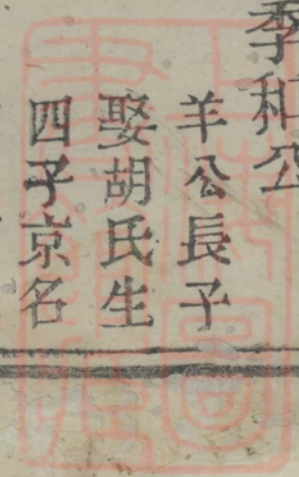 季和公
羊公長子
娶胡氏生
四子京名